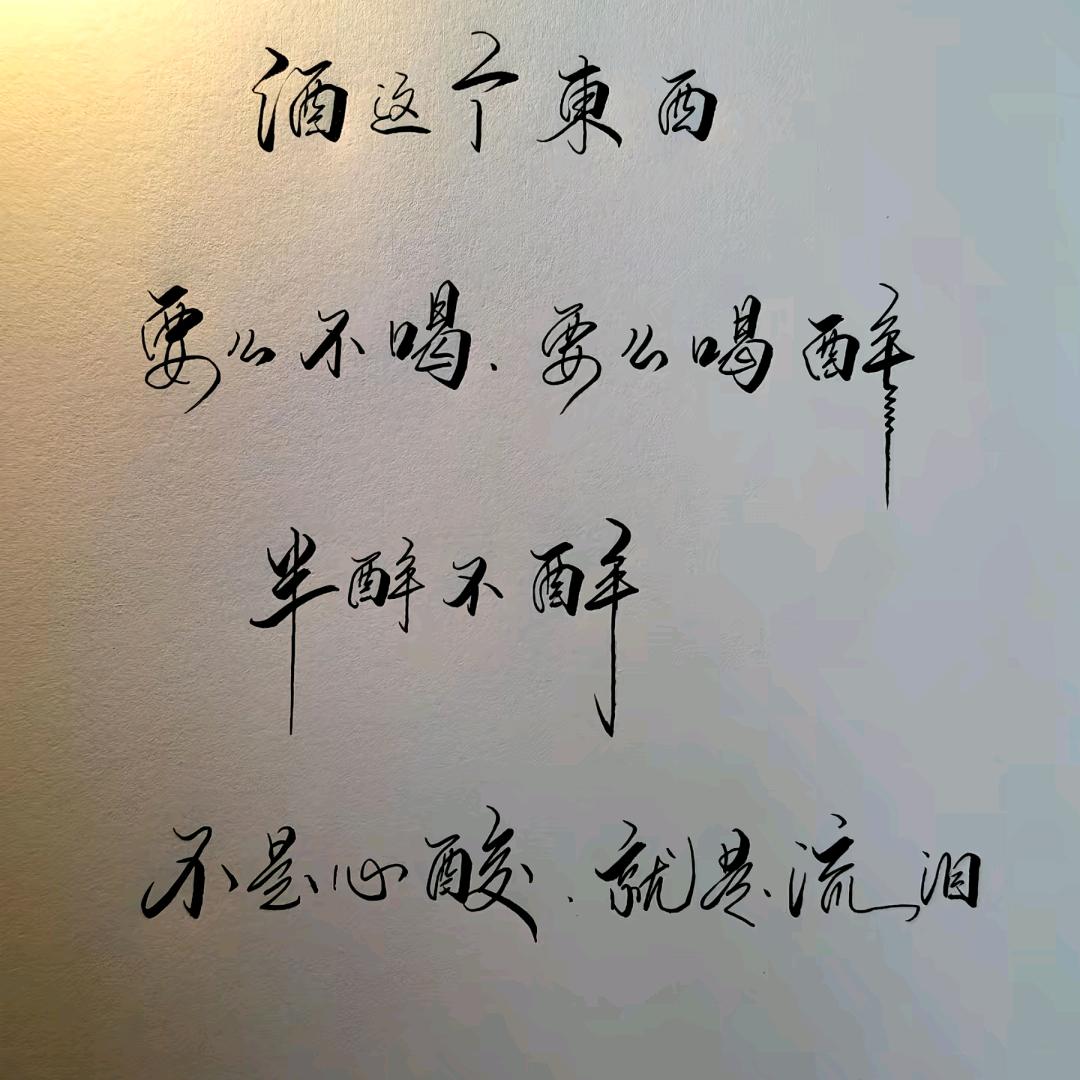 酒这个東西
要么不喝.要么喝醉
半醉不醉
不是心酸.就是流泪